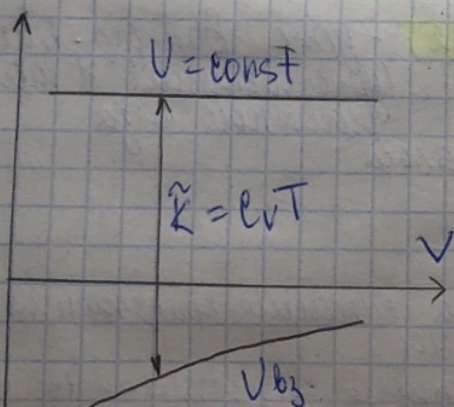 U = const
K̃ = CᵥT
V
Uвз.